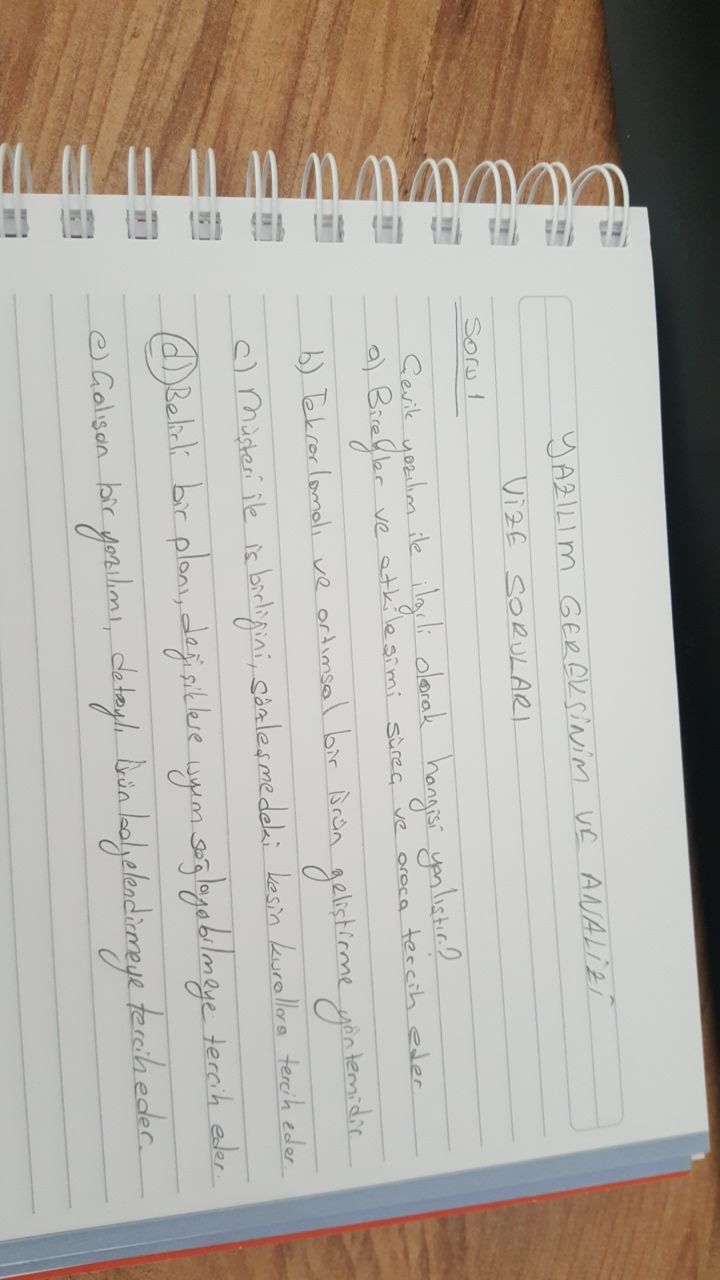 YAZILIM GEREKSİNİM VE ANALİZİ
VİZE SORULARI
Soru 1
Çevik yazılım ile ilgili olarak hangisi yanlıştır?
a) Bireyler ve etkileşimi süreç ve araca tercih eder
b) Tekrarlamalı ve artımsal bir ürün geliştirme yöntemidir
c) Müşteri ile iş birliğini, sözleşmedeki kesin kurallara tercih eder
d) Belirli bir planı, değişiklere uyum sağlayabilmeye tercih eder.
e) Çalışan bir yazılımı, detaylı ürün belgelendirmeye tercih eder.